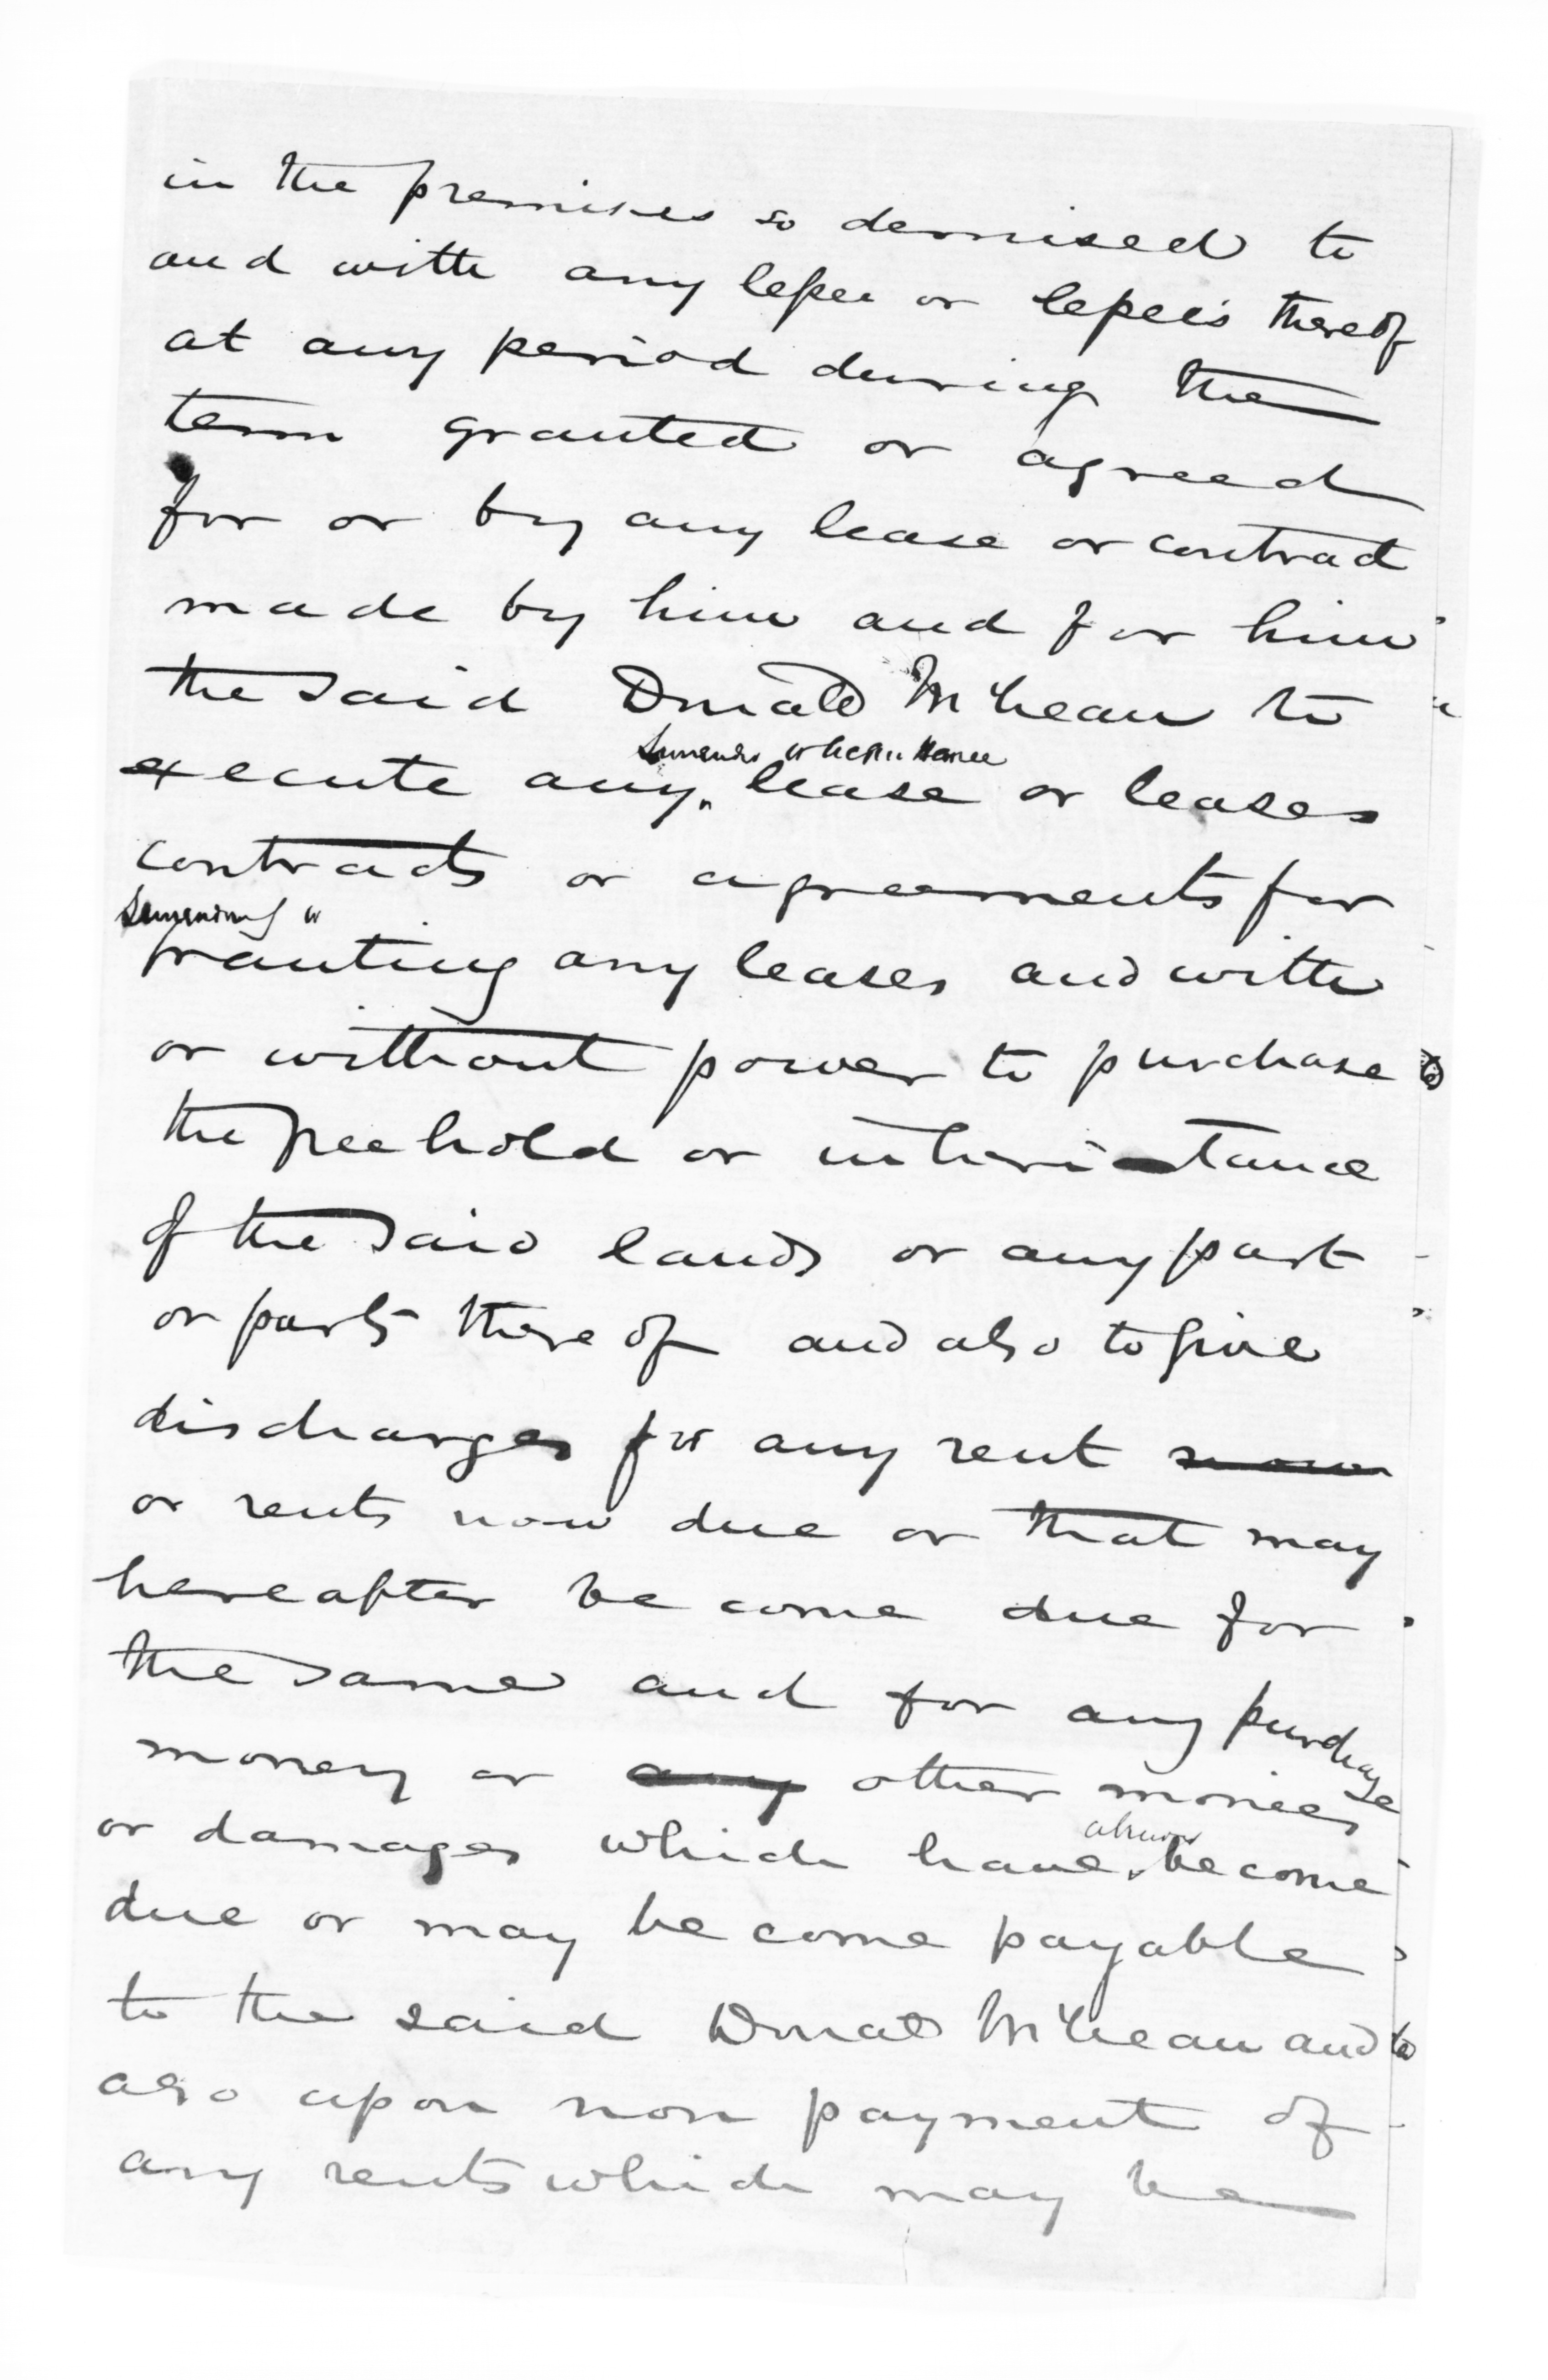 in the premises so demised to
and with any lessee or lessees thereof
at any period during the
term granted or agreed
for or by any lease or contract
made by him and for him
the said Donald McLean to
Surrender or
execute any lease or leases
contracts or agreements for
Surrendering or
granting any leases and with
or without power to purchase
the freehold or inheritance
of the said lands or any part
or parts thereof and also to give
discharges for any rent
or rents now due or that may
hereafter become due for
the same and for any purchase
money or any other monies
or damages which have already become
due or may become payable
to the said Donald McLean and
also upon non payment of
any rents which may be